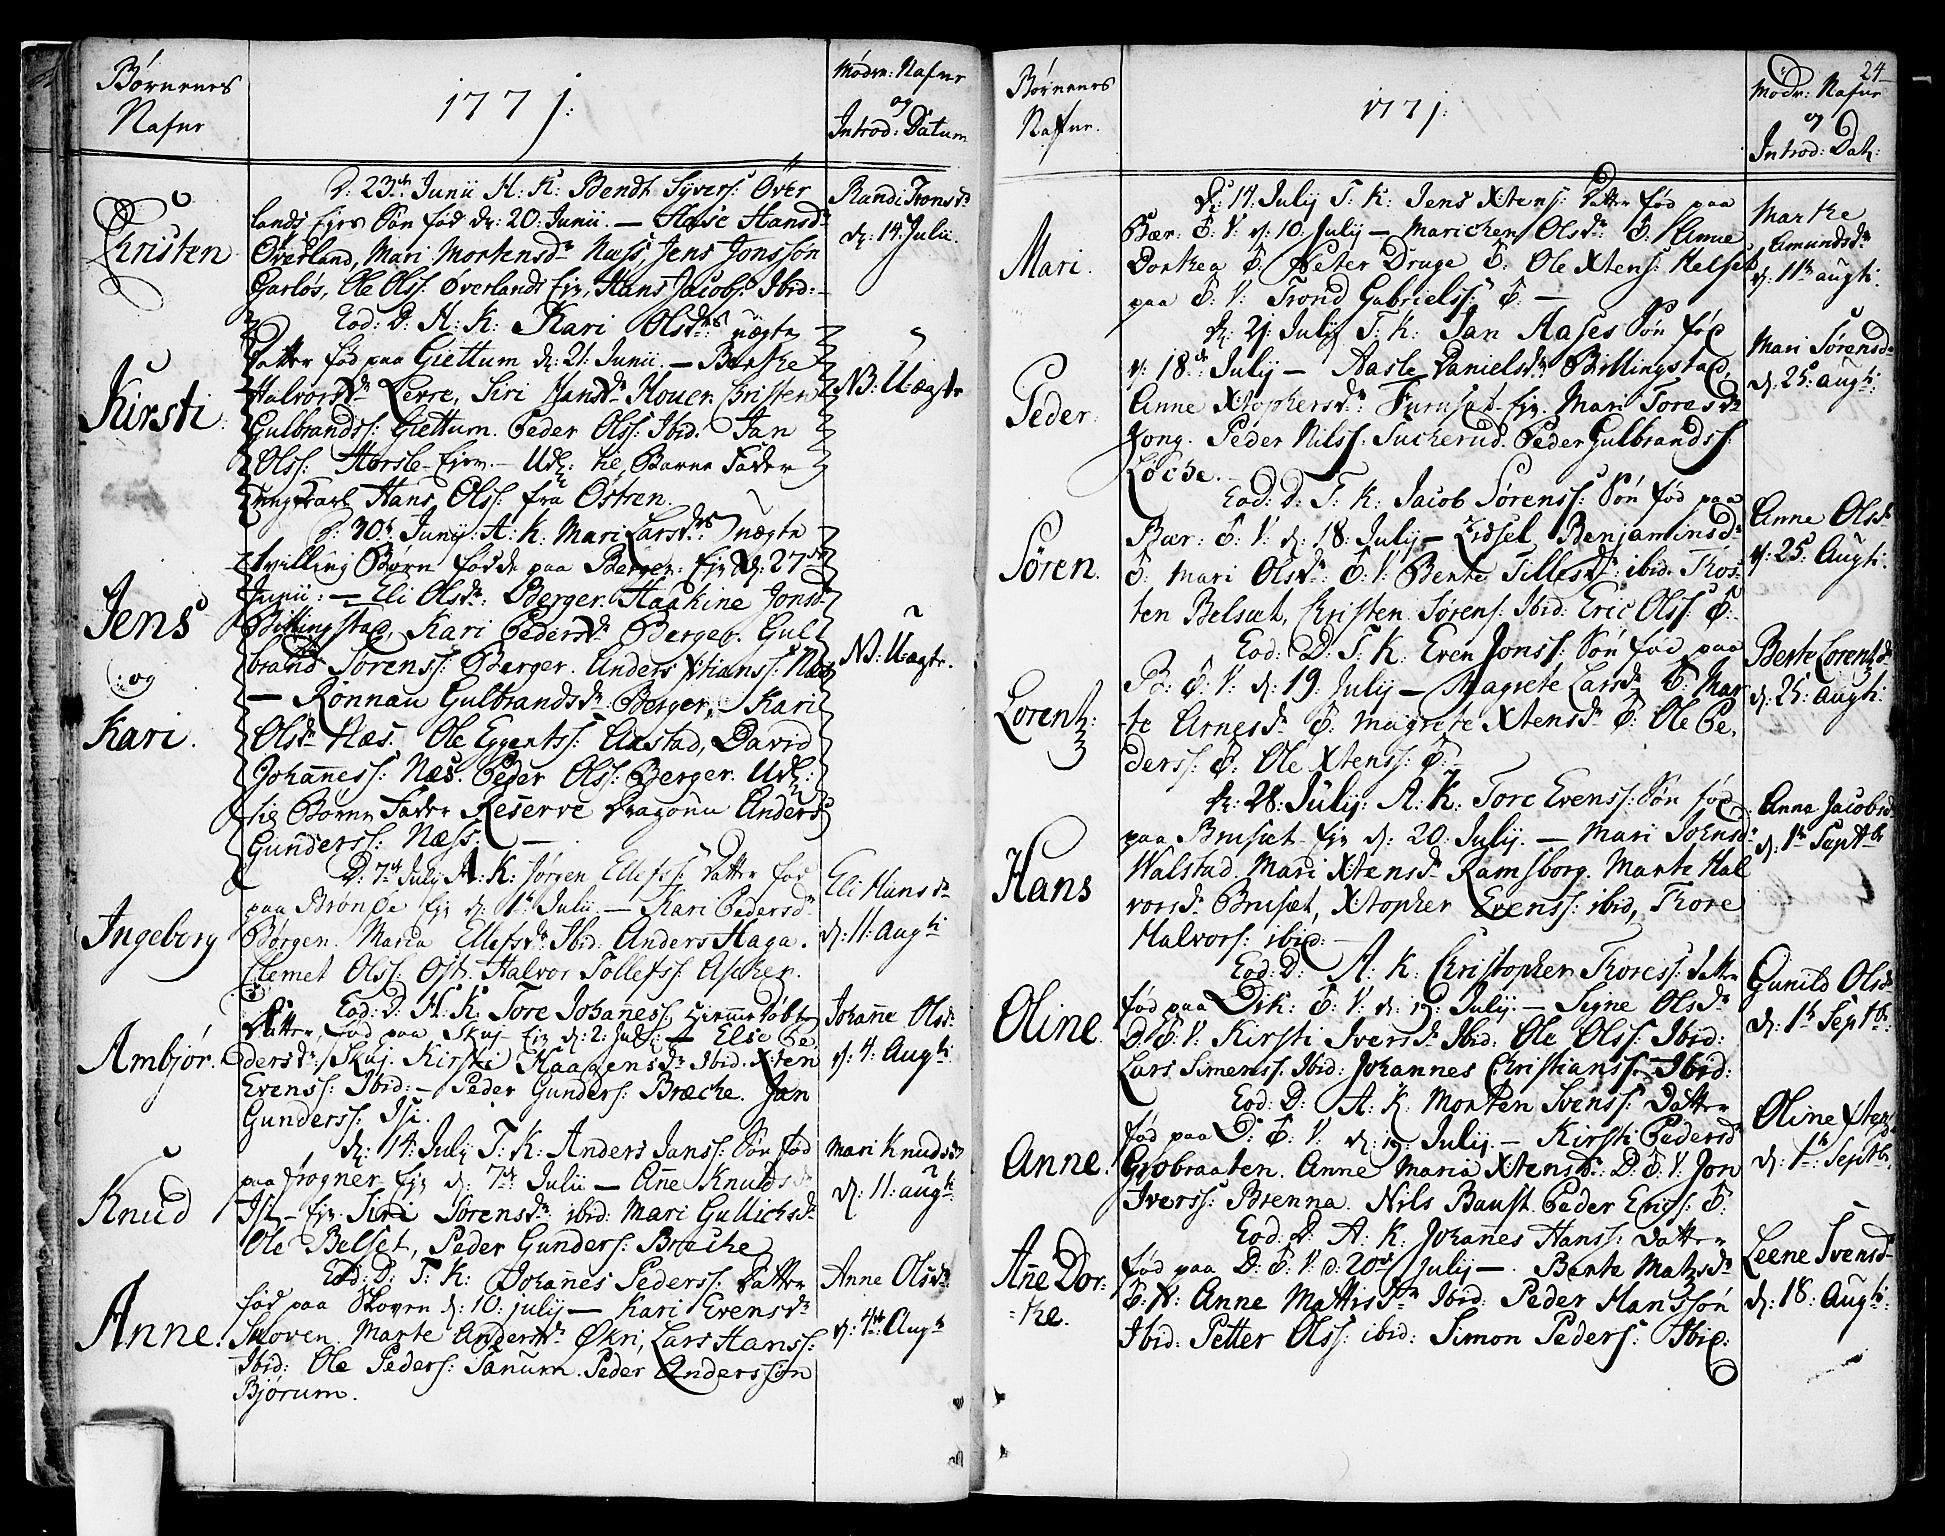 Børnenes
Nafne
1771:
Mødr: Nafne
og
Introd: Datum
Kristen
D: 23de Junii A: K: Bendt Syvers: Over
lands Eje Søn fød d: 20: Junii. — Hansdr
Øverland, Mari Mortensdr Næss, Jens Jonssøn
Ole Olss: Øverlands Eje, Hans Jacobs: Ibid: —
Randi Tronsdr
d: 14 Julii.
Kirsti
Eod: D: A: K: Kari Olsdrs uægte
Datter fød paa Giettum d: 21: Junii. — Berthe
Halvorsdr Kerre, Siri Hansdr Houen Christen
Gulbrandss: Giettum. Peder Olss: Ibid. Jan
Olss: Horsle Eje. — Udl: til Barne Fader
Ungkarl Hans Olss: fra Østren.
NB: Uægte
Jens
: og
Kari.
D: 30te Junij A: K: Mari Larsdrs uægte
tvilling Børn fødde paa Berger Eje d: 27de
Junii: — Eli Olsdr: Berger. Haakine Jonsd
Billingstad, Kari Pedersdr Berger. Gul
brand Sørenss: Berger. Anders Xtianss: Næs
— Rønnau Gulbrandsdr Berger, Kari
Olsdr Næs. Ole Eggertss: Axstad, David
Johaness: Næs. Peder Olss: Berger. Udl:
til Barne Fader Reserve Dragoun Anders
Gunderss: Næss. —
NB: Uægte.
Ingeborg
D: 7de Julij A: K: Jørgen Ellefss: Datter fød
paa Brønde Eje d: 1te Julii — Kari Pedersdr
Børgen. Maria Ellefsdr Ibid: Anders Haga.
Clemet Olss: Øst: Halvor Tollefss: Ascher.
Eli Hansdr
d: 11: Augti
Ambjør.
Eod: D: A: K: Tore Johaness: hiemmedøbte
Datter, fød paa Skuj Eje d: 2: Julij — Else Pe
dersdr: Skuj. Kirsti Haagensdr Ibid. Xten
Evenss: Ibid: — Peder Gunders: Bræche. Jan
Gunderss: Isi.
Johanne Olsdr
d: 4: Augti
Knud
d: 14: Julij T: K: Anders Janss: Søn fød
paa frogner Eje d: 7de Julii — Ane Knudsdr
Isi — Eje. Siri Sørensdr ibid: Mari Gullichsdr
Ole Belset, Peder Gunders: Bræche
Mari Knudsdr
d: 11: augti
Anne.
Eod: D: T: K: Johanes Pederss: Datter
fød paa Skoven d: 10: julij — Kari Evensdr
Skoven. Marte Andersdr Økri, Lars Hanss:
Ibid: Ole Peders: Tanum. Peder Anderssøn
Bjørum.
Anne Olsdr
d: 4de Augti
24
Børnenes
Nafne.
1771:
Mødr: Nafne
og
Introd: Dat:
Mari.
d: 14 Julij T: K: Jens Xtens: Datter fød paa
Bær: J: V: d: 10: Julij — Marichen Olsdr: J: Anne
Dorthea J: Peter Druge J: Ole Xtens: Helset
paa J: V: Trond Gabrielss: J: —
Marthe
Amundsdr
d: 11te augti:
Peder.
d: 21: Julij T: K: Jan Aases Søn fød
d: 18de Julij — Aasle Danielsdr Billingstad,
Anne Xtophersdr: Furuset Eje. Mari Toresdr
Jong. Peder Nilss: Tucherud. Peder Gulbrandss:
Løche. —
Mari Sørensdr
d: 25: augti:
Søren.
Eod: D: T: K: Jacob Sørenss: Søn fød paa
Bær: J: V: d: 18: Julij — Zidsel Benjaminsdr
J: Mari Olsdr: J: V: Berte Tillesdr: ibid. Thos
ten Belsæt, Christen Sørens: Ibid: Eric Olss: J: —
Anne Olsdr
d: 25: Augti:
Lorentz:
Eod: D: T: K: Even Jonss: Søn fød paa
B: J: V: d: 19: Julij — Magrete Larsdr J: Mar
te Arnesdr J: Magrete Xtensdr J: Ole Pe,
derss: J: Ole Xtenss: J: —
Berte Lorentzdr
d: 25: Augti:
Hans
d: 28: Julij: A: K: Tore Evenss: Søn fød
paa Brusæt Eje d: 20: Julij. — Mari Joensdr
Walstad. Mari Xtensdr Ramsborg. Marte Hal
vorsdr Brusæt, Xtopher Evenss: ibid, Thore
Halvors: ibid: —
Anna Jacobsdr
d: 1te Septbr
Oline.
Eod: D: A: K: Christopher Thoress: Datter
fød paa Dik: J: V: d: 19: Julij — Signe Olsdr
D: J: V: Kirsti Iversdr Ibid: Ole Olss: Ibid:
Lars Simenss: Ibid: Johannes Christianss: Ibid:
Gunild Olsdr
d: 1te Septbr.
Anne.
Eod: D: A: K: Morten Svenss: Datter
fød paa D: J: V: d: 19: Julij — Kirsti Pedersdr
Grobraaten. Anne Maria Xtensdr: D: J: V: Jon
Iverss: Brenna. Nils Baust. Peder Erics: J:
Oline
d: 1te: Septbr.
Ane Dor
=the.
Eod: D: A: K: Johanes Hanss: Datter
fød paa D: J: V: d: 20de Julij — Berte Matzdr
J: V: Anne Mattisdr Ibid: Peder Hanssøn
Ibid: Petter Olss: ibid: Simon Peders: Ibid:
Leene Svensdr
d: 18: Augti: